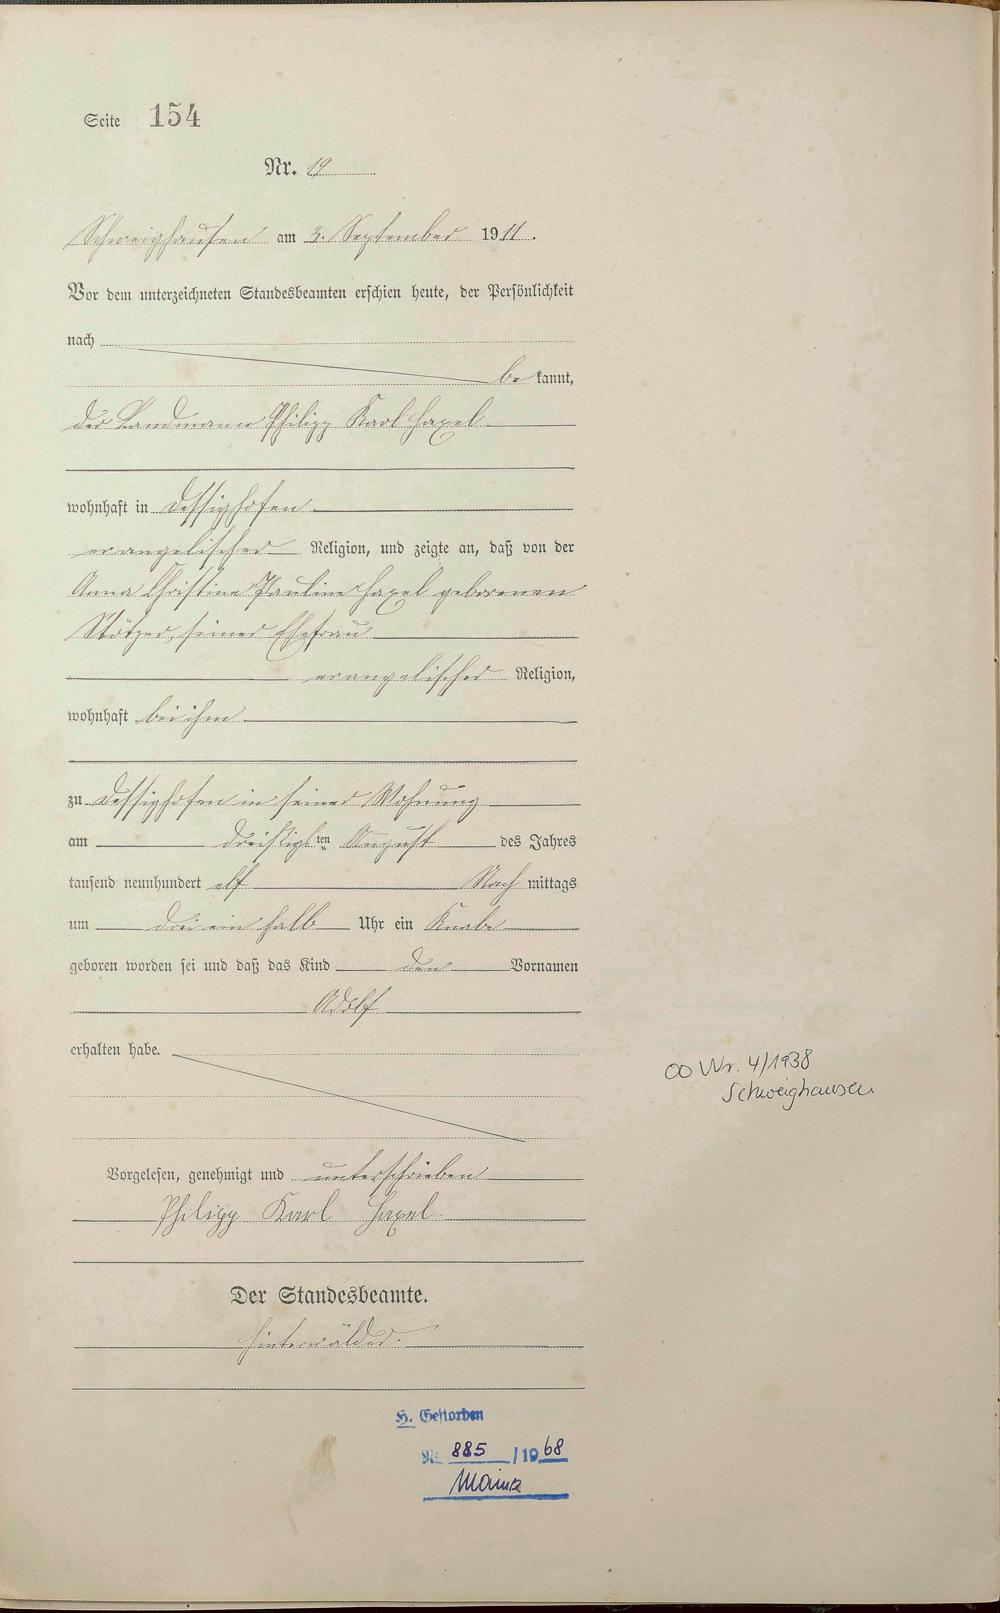 Seite 154
Nr. 19
Schweighausen am 3. September 1911.
Vor dem unterzeichneten Standesbeamten erschien heute, der Persönlichkeit
nach
be kannt,
der Landmann Philipp Karl Haxel
wohnhaft in Dessighofen
evangelischer Religion, und zeigte an, daß von der
Anna Christine Pauline Haxel geborenen
Stötzer, seiner Ehefrau
evangelischer Religion,
wohnhaft bei ihm
zu Dessighofen in seiner Wohnung
am dreißigsten August des Jahres
tausend neunhundert elf Nach mittags
um drei ein halb Uhr ein Knabe
geboren worden sei und daß das Kind den Vornamen
Adolf
erhalten habe.
OO Nr. 4/1938
Schweighausen
Vorgelesen, genehmigt und unterschrieben
Philipp Karl Haxel
Der Standesbeamte.
Hinterwälder.
H. Gestorben
Nr. 885 /1968
Mainz